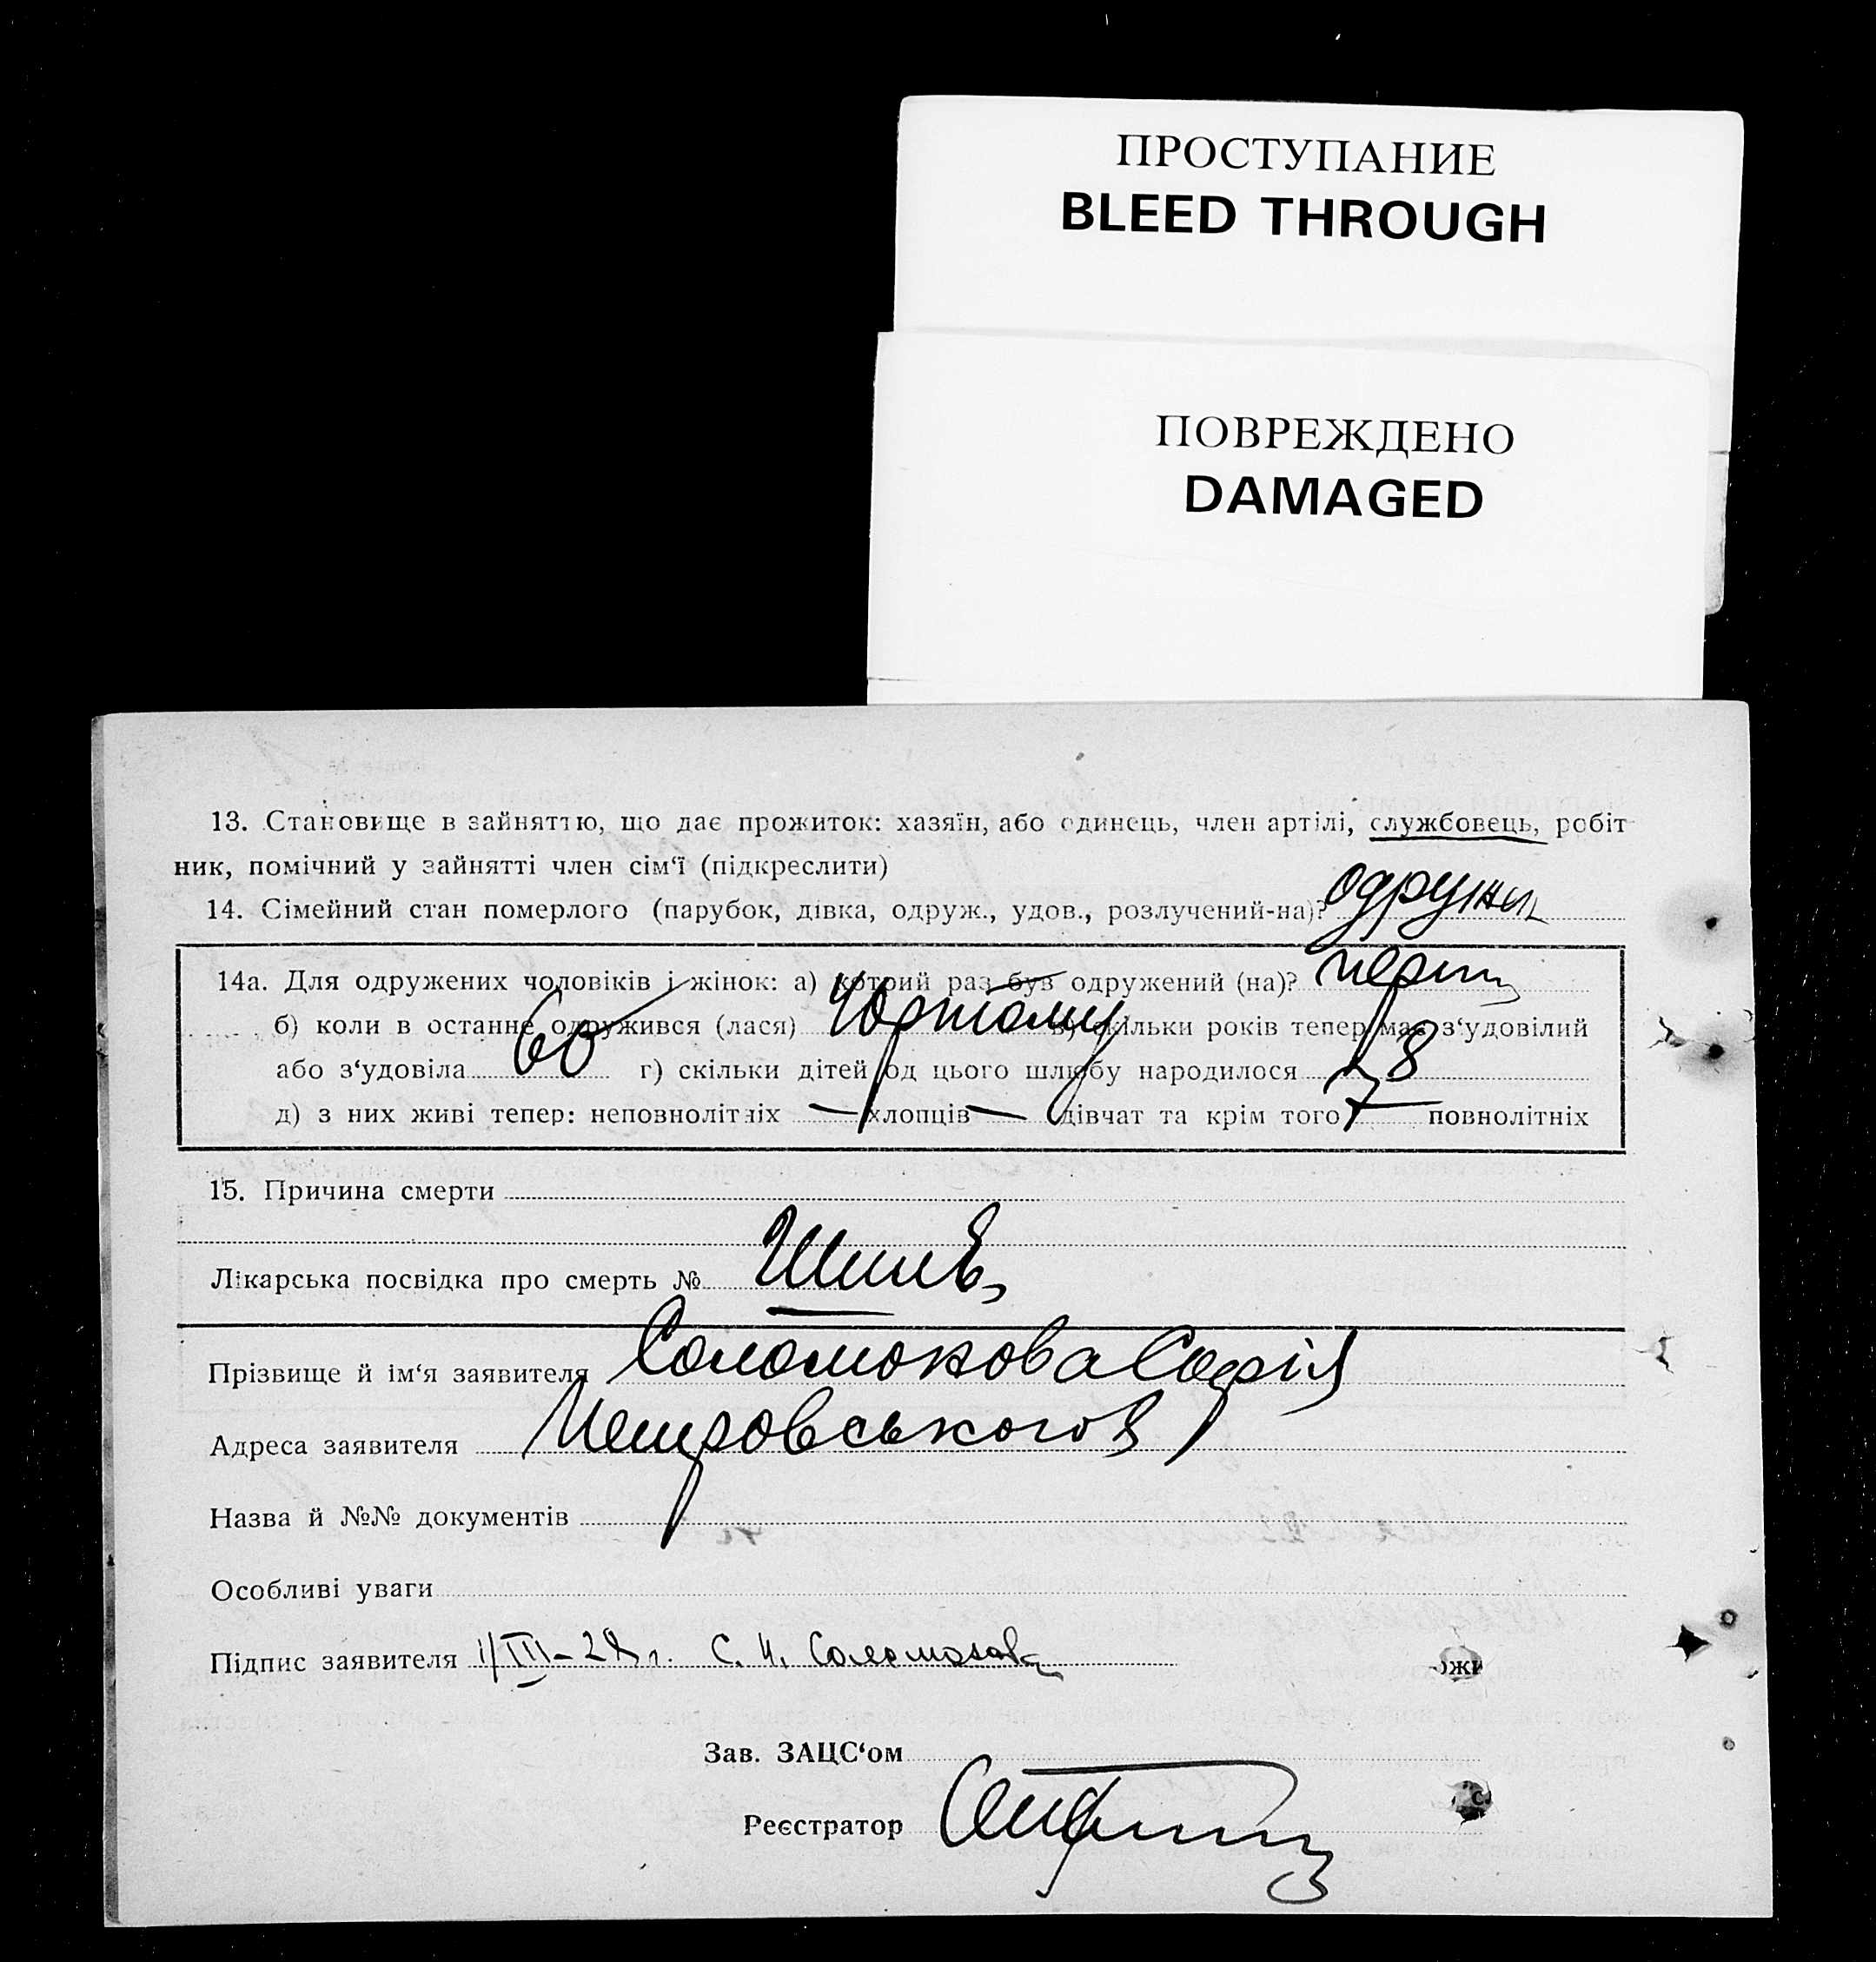 ПРОСТУПАНИЕ
BLEED THROUGH
ПОВРЕЖДЕНО
DAMAGED
13. Становище в зайняттю, що дає прожиток: хазяїн, або одинець, член артілі, службовець, робіт-
ник, помічний у зайнятті член сім‘ї (підкреслити)
14. Сімейний стан померлого (парубок, дівка, одруж., удов., розлучений-на)? одружен
14а. Для одружених чоловіків і жінок: а) котрий раз був одружений (на)? перш
б) коли в останнє одружився (лася) в) скільки років тепер має з‘удовілий
або з‘удовіла 60 г) скільки дітей од цього шлюбу народилося 8
д) з них живі тепер: неповнолітніх — хлопців — дівчат та крім того 7 повнолітніх
15. Причина смерти
Лікарська посвідка про смерть №
Прізвище й ім‘я заявителя Соломонова Софія
Адреса заявителя Петровського 8
Назва й №№ документів
Особливі уваги
Підпис заявителя 1/III–28 г. С. И. Соломонова
Зав. ЗАЦС‘ом
Реєстратор